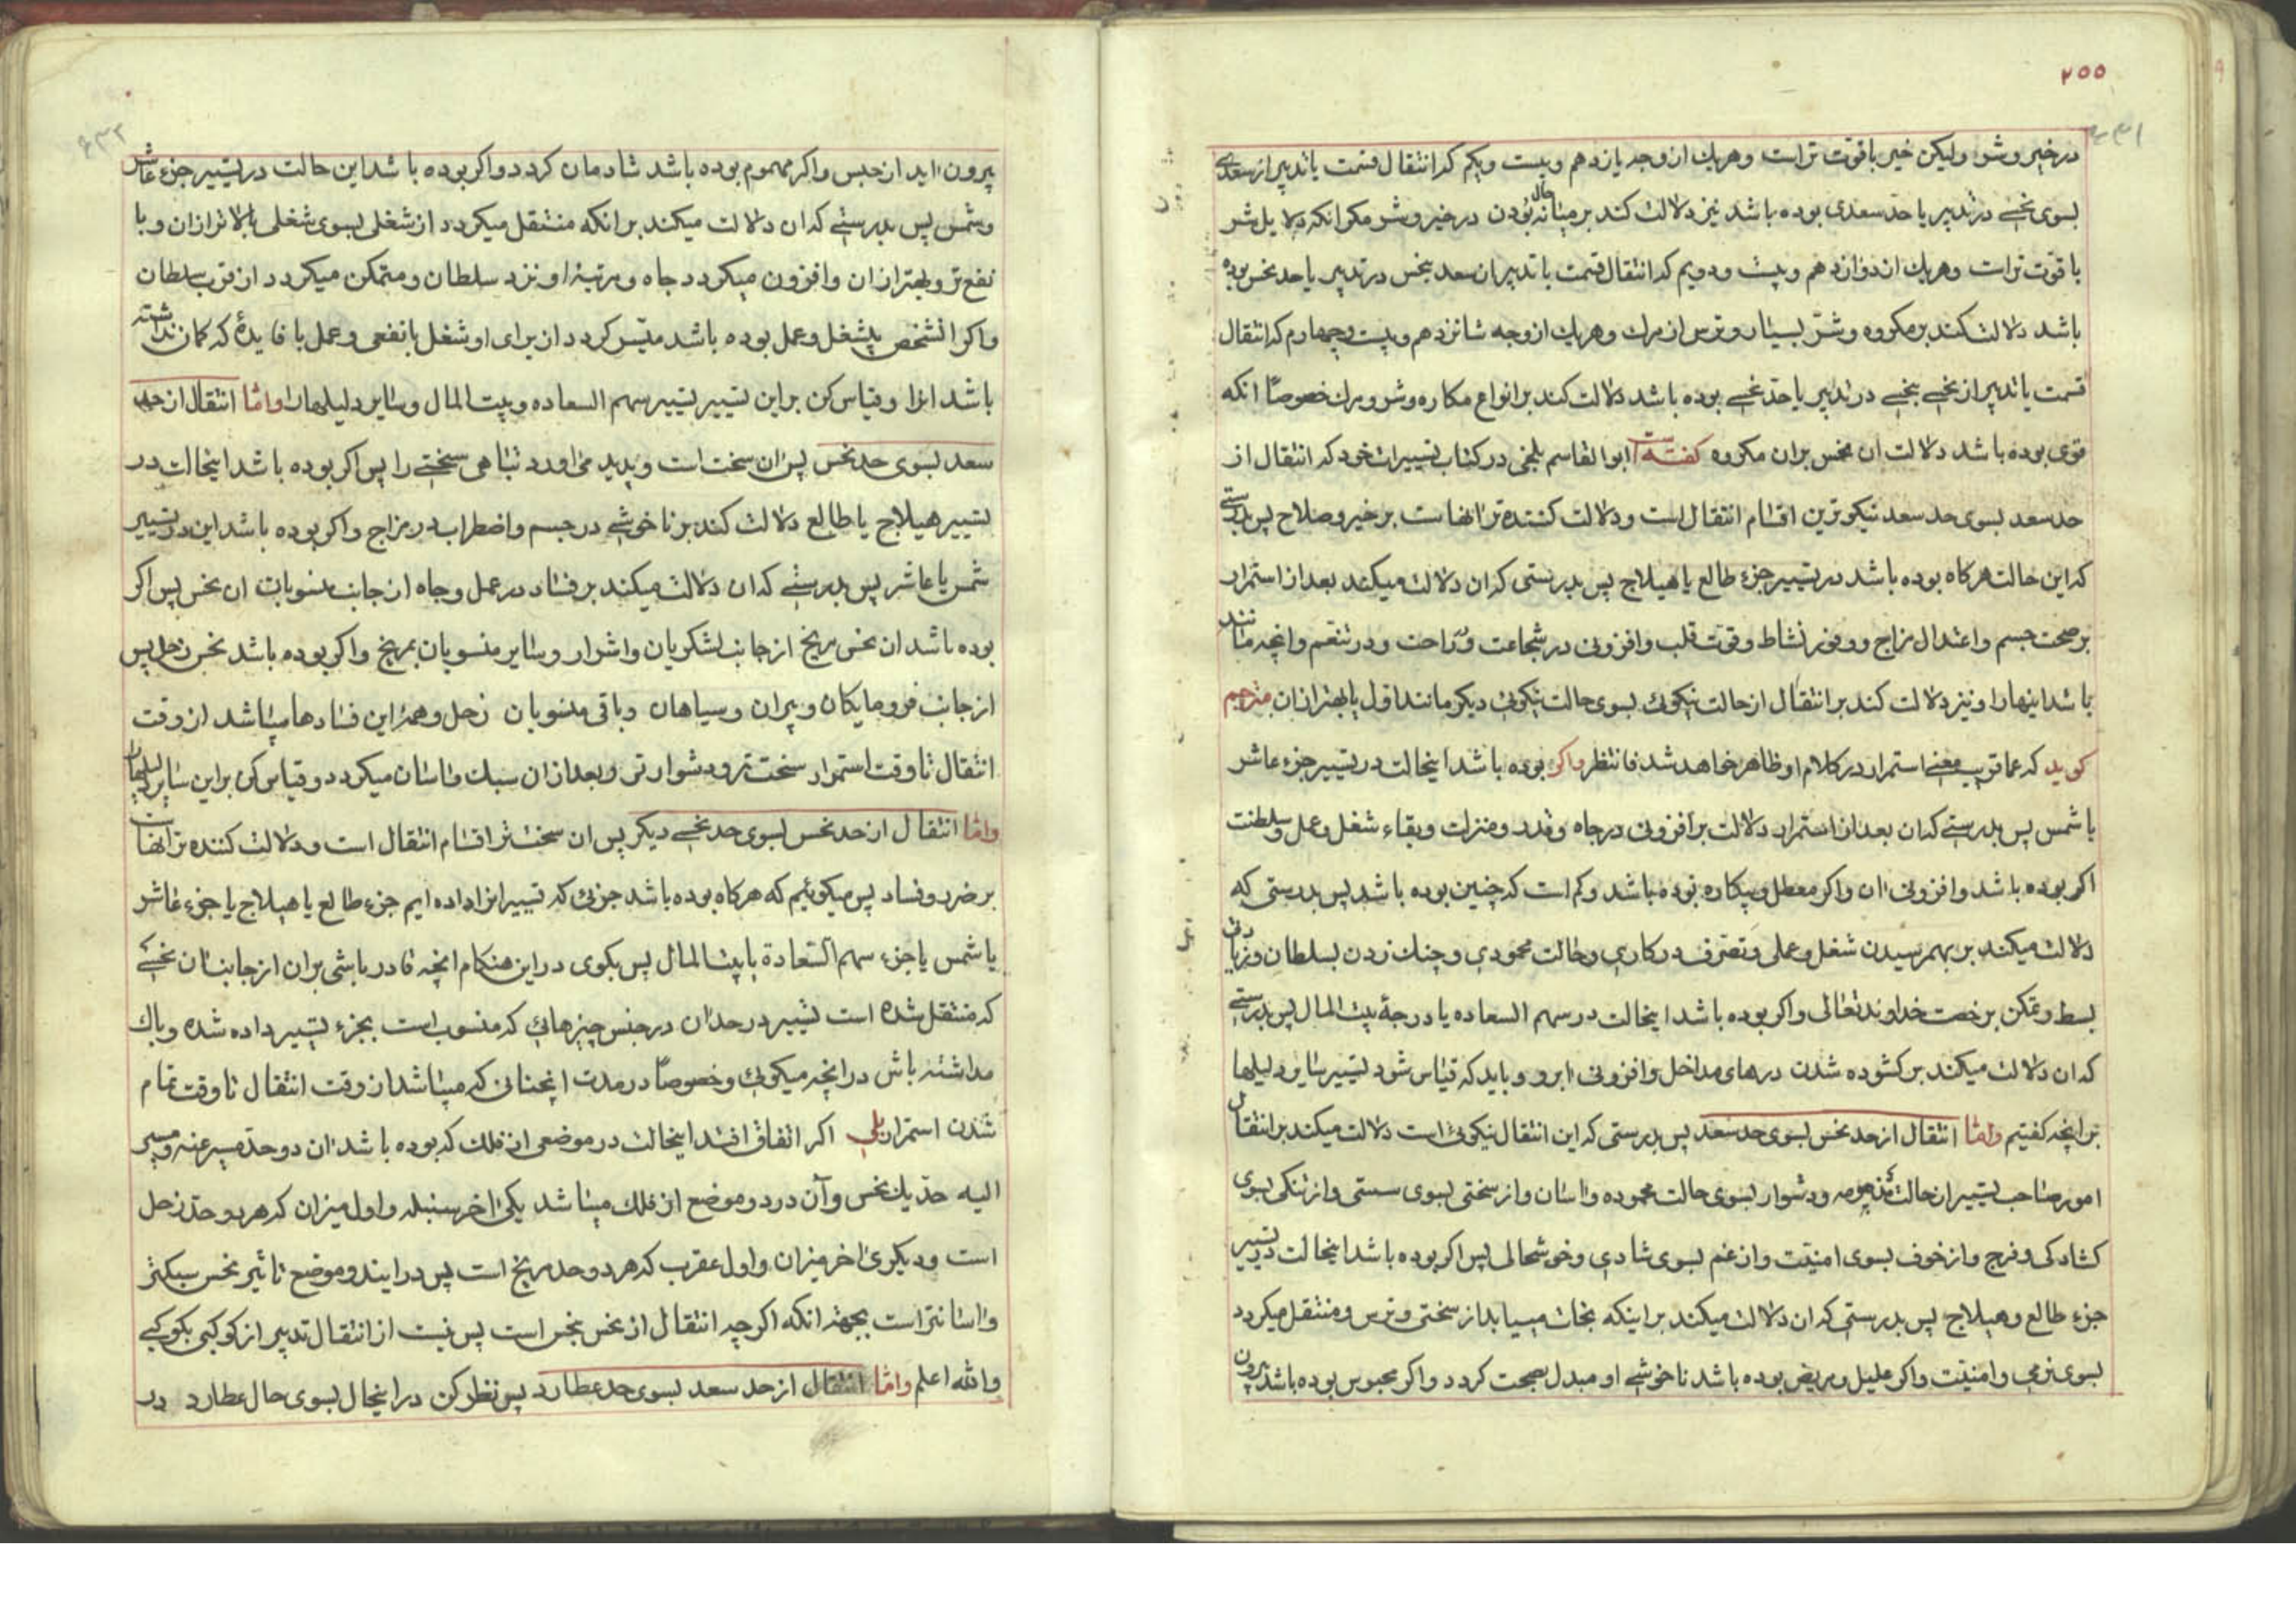 ۲۵۵
در خیر و شر ولیکن خیر با قوت تر است و هریك از وجه یازدهم و بیست و یکم که انتقال قسمت یا تدبیر از سعدی
بسوی نحسی در تدبیر یا حد سعدی بوده باشد نیز دلالت کند بر میانه حال بودن در خیر و شر مکر انکه دلایل شر
با قوت تر است و هریك از دوازدهم و بیست و دویم که انتقال قسمت یا تدبیر از سعد بنحس در تدبیر یا حد نحس بوده
باشد دلالت کند بر مکروه و شر بسیار و ترس از مرك و هریك از وجه شانزدهم و بیست و چهارم که انتقال
قسمت یا تدبیر از نحسی بنحسی در تدبیر یا حد نحسی بوده باشد دلالت کند بر انواع مکاره و شر و مرك خصوصاً انکه
قوی بوده باشد دلالت ان نحس بران مکروه کفته است ابوالقاسم بلخی در کتاب تسییرات خود که انتقال از
حد سعد بسوی حد سعد نیکوترین اقسام انتقال است و دلالت کننده تر انهاست بر خیر و صلاح پس بدرستی
که این حالت هرکاه بوده باشد در تسییر جزء طالع یا هیلاج پس بدرستی که ان دلالت میکند بعد از استمرار
بر صحت جسم و اعتدال مزاج و وفور نشاط و قوت قلب و افزونی در شجاعت و در راحت و در تنعم و انچه مانند
باشد اینها را و نیز دلالت کند بر انتقال از حالت نیکوئی بسوی حالت نیکوئی دیکر مانند اول یا بهتر ازان مترجم
کوید که عنقریب معنی استمرار در کلام او ظاهر خواهد شد فانتظر واکر بوده باشد اینحالت در تسییر جزء عاشر
یا شمس پس بدرستی که ان بعد از استمرار دلالت بر افزونی در جاه و قدر و منزلت و بقاء شغل و عمل و سلطنت
اکر بوده باشد و افزونی ان واکر معطل و بیکاره بوده باشد و کم است که چنین بوده باشد پس بدرستی که
دلالت میکند بر بهمرسیدن شغل و عملی و تصرف در کاری و حالت محمودی و چنك زدن بسلطان و زیادتی
بسط و تمکن برخصت خداوند تعالی واکر بوده باشد اینحالت در سهم السعاده یا درجهٔ بیت المال پس بدرستی
که ان دلالت میکند بر کشوده شدن درهای مداخل و افزونی ابرو و باید که قیاس شود تسییر سایر دلیلها
بر انچه کفتیم واما انتقال از حد نحس بسوی حد سعد پس بدرستی که این انتقال نیکوئی است دلالت میکند بر انتقال
امور صاحب تسییر از حالت مذمومه و دشوار بسوی حالت محموده و اسان و از سختی بسوی سستی و از تنکی بسوی
کشادکی و فرج و از خوف بسوی امنیت و از غم بسوی شادی و خوشحالی پس اکر بوده باشد اینحالت در تسییر
جزء طالع و هیلاج پس بدرستی که ان دلالت میکند بر اینکه نجات مییابد از سختی و ترس و منتقل میکردد
بسوی نرمی و امنیت واکر علیل و مریض بوده باشد ناخوشی او مبدل بصحت کردد واکر محبوس بوده باشد بیرون
بیرون اید از حبس واکر مهموم بوده باشد شادمان کردد واکر بوده باشد این حالت در تسییر جزء عاشر
و شمس پس بدرستی که ان دلالت میکند بر انکه منتقل میکردد از شغلی بسوی شغلی بالاتر ازان و با
نفع تر و بهتر ازان و افزون میکردد جاه و مرتبهٔ او نزد سلطان و متمکن میکردد از قرب سلطان
واکر انشخص بیشغل و عمل بوده باشد میسر کردد از برای او شغل بانفعی و عمل با فایدهٔ که کمان نداشته
باشد انرا و قیاس کن براین تسییر تسییر سهم السعاده و بیت المال و سایر دلیلها را واما انتقال از حد
سعد بسوی حد نحس پس ان سخت است و پدید می اورد تباهی سختی را پس اکر بوده باشد اینحالت در
تسییر هیلاج یا طالع دلالت کند بر ناخوشی در جسم و اضطراب در مزاج واکر بوده باشد این در تسییر
شمس یا عاشر پس بدرستی که ان دلالت میکند بر فساد در عمل و جاه از جانب منسوبات ان نحس پس اکر
بوده باشد ان نحس مریخ از جانب لشکریان و اشرار و سایر منسوبان بمریخ واکر بوده باشد نحس زحل پس
از جانب فرومایکان و پیران و سیاهان و باقی منسوبان زحل و همهٔ این فسادها میباشد از وقت
انتقال تا وقت استمرار سخت تر و دشوارتر و بعد ازان سبك و اسان میکردد و قیاس کن براین سایر دلیلها را
واما انتقال از حد نحس بسوی حد نحسی دیکر پس ان سخت تر اقسام انتقال است و دلالت کننده تر انهاست
بر ضرر و فساد پس میکوئیم که هرکاه بوده باشد جزئی که تسییر انرا داده ایم جزء طالع یا هیلاج یا جزء عاشر
یا شمس یا جزء سهم السعادة یا بیت المال پس بکوی در این هنکام انچه قادر باشی بران از جانب ان نحسی
که منتقل شده است تسییر در حد ان در جنس چیزهائی که منسوب است بجزء تسییر داده شده و باك
مداشته باش در انچه میکوئی و خصوصاً در مدت انچنانی که میباشد از وقت انتقال تا وقت تمام
شدن استمرار بلی اکر اتفاق افتد اینحالت در موضعی از فلك که بوده باشد ان دو حد مسیر عنه و مسیر
الیه حد یك نحس و آن در دو موضع از فلك میباشد یکی اخر سنبله و اول میزان که هردو حد زحل
است و دیکری اخر میزان و اول عقرب که هردو حد مریخ است پس در این دو موضع تاثیر نحس سبکتر
و اسانتر است بجهة انکه اکرچه انتقال از نحس بنحس است پس نیست از انتقال تدبیر از کوکبی بکوکبی
والله اعلم واما انتقال از حد سعد بسوی حد عطارد پس نظر کن در اینحال بسوی حال عطارد در